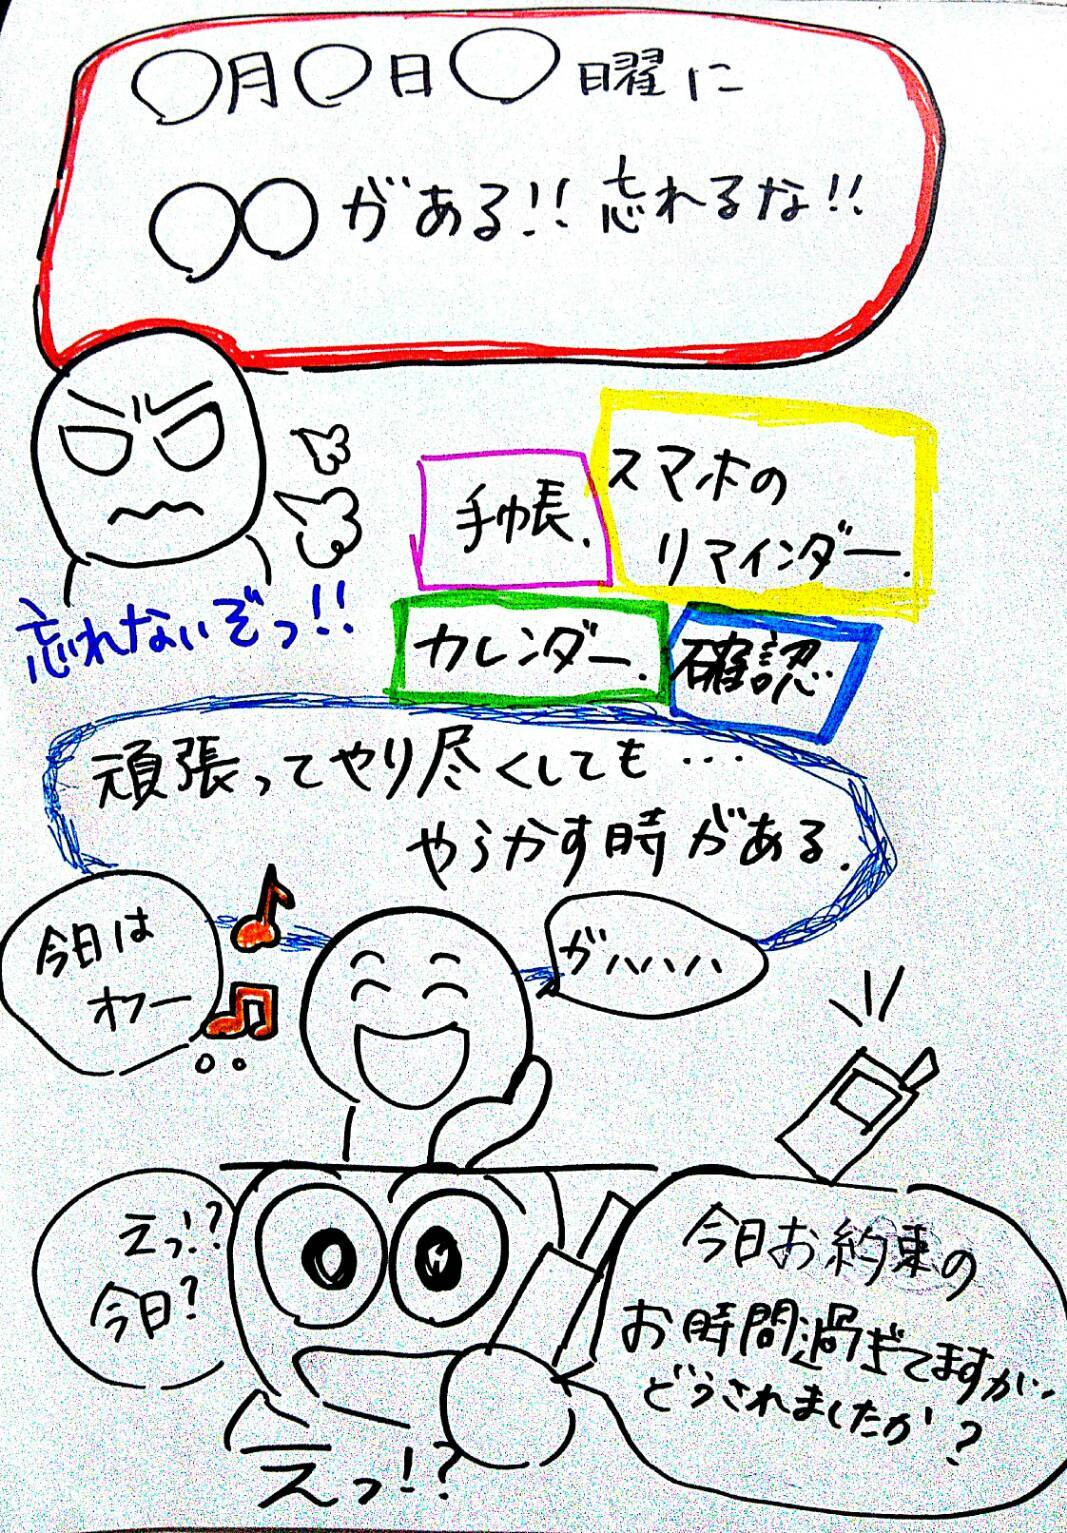 〇月〇日〇曜に
〇〇がある!!忘れるな!!
手帳.
スマホの
リマインダー.
忘れないぞっ!!
カレンダー.
確認.
頑張ってやり尽くしても...
やらかす時がある.
今日は
オフー
ガハハハハ
えっ!?
今日?
今日お約束の
お時間過ぎてますが、
どうされましたか?
えっ!?